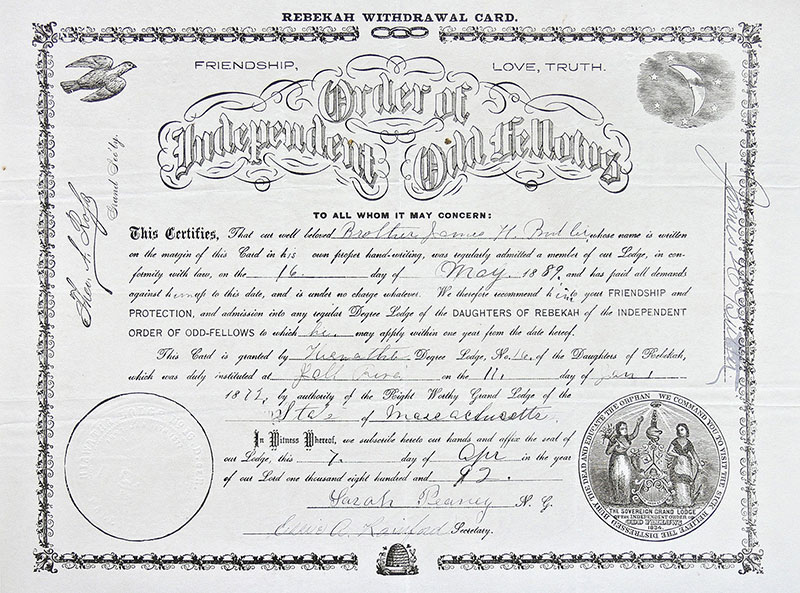 REBEKAH WITHDRAWAL CARD.
FRIENDSHIP, LOVE, TRUTH.
Order of
Independent Odd Fellows
TO ALL WHOM IT MAY CONCERN:
This Certifies, That our well beloved Brother James H. Butler whose name is written
on the margin of this Card in his own proper hand-writing, was regularly admitted a member of our Lodge, in con-
formity with law, on the 16. day of May. 1889. and has paid all demands
against him up to this date, and is under no charge whatever. We therefore recommend him to your FRIENDSHIP and
PROTECTION, and admission into any regular Degree Lodge of the DAUGHTERS OF REBEKAH of the INDEPENDENT
ORDER OF ODD-FELLOWS to which he may apply within one year from the date hereof.
This Card is granted by Degree Lodge, No. 16. of the Daughters of Rebekah,
which was duly instituted at Fall River on the 11. day of Jan.
187 , by authority of the Right Worthy Grand Lodge of the
State of Massachusetts.
In Witness Whereof, we subscribe hereto our hands and affix the seal of
our Lodge, this 7. day of Apr in the year
of our Lord one thousand eight hundred and 92.
Sarah N. G.
Secretary.
Theo. A. Ross
Grand Sec'ty.
James H. Butler
BURY THE DEAD AND EDUCATE THE ORPHAN WE COMMAND YOU TO VISIT THE SICK RELIEVE THE DISTRESSED
THE SOVEREIGN GRAND LODGE
OF THE INDEPENDENT ORDER OF
ODD FELLOWS
1834.